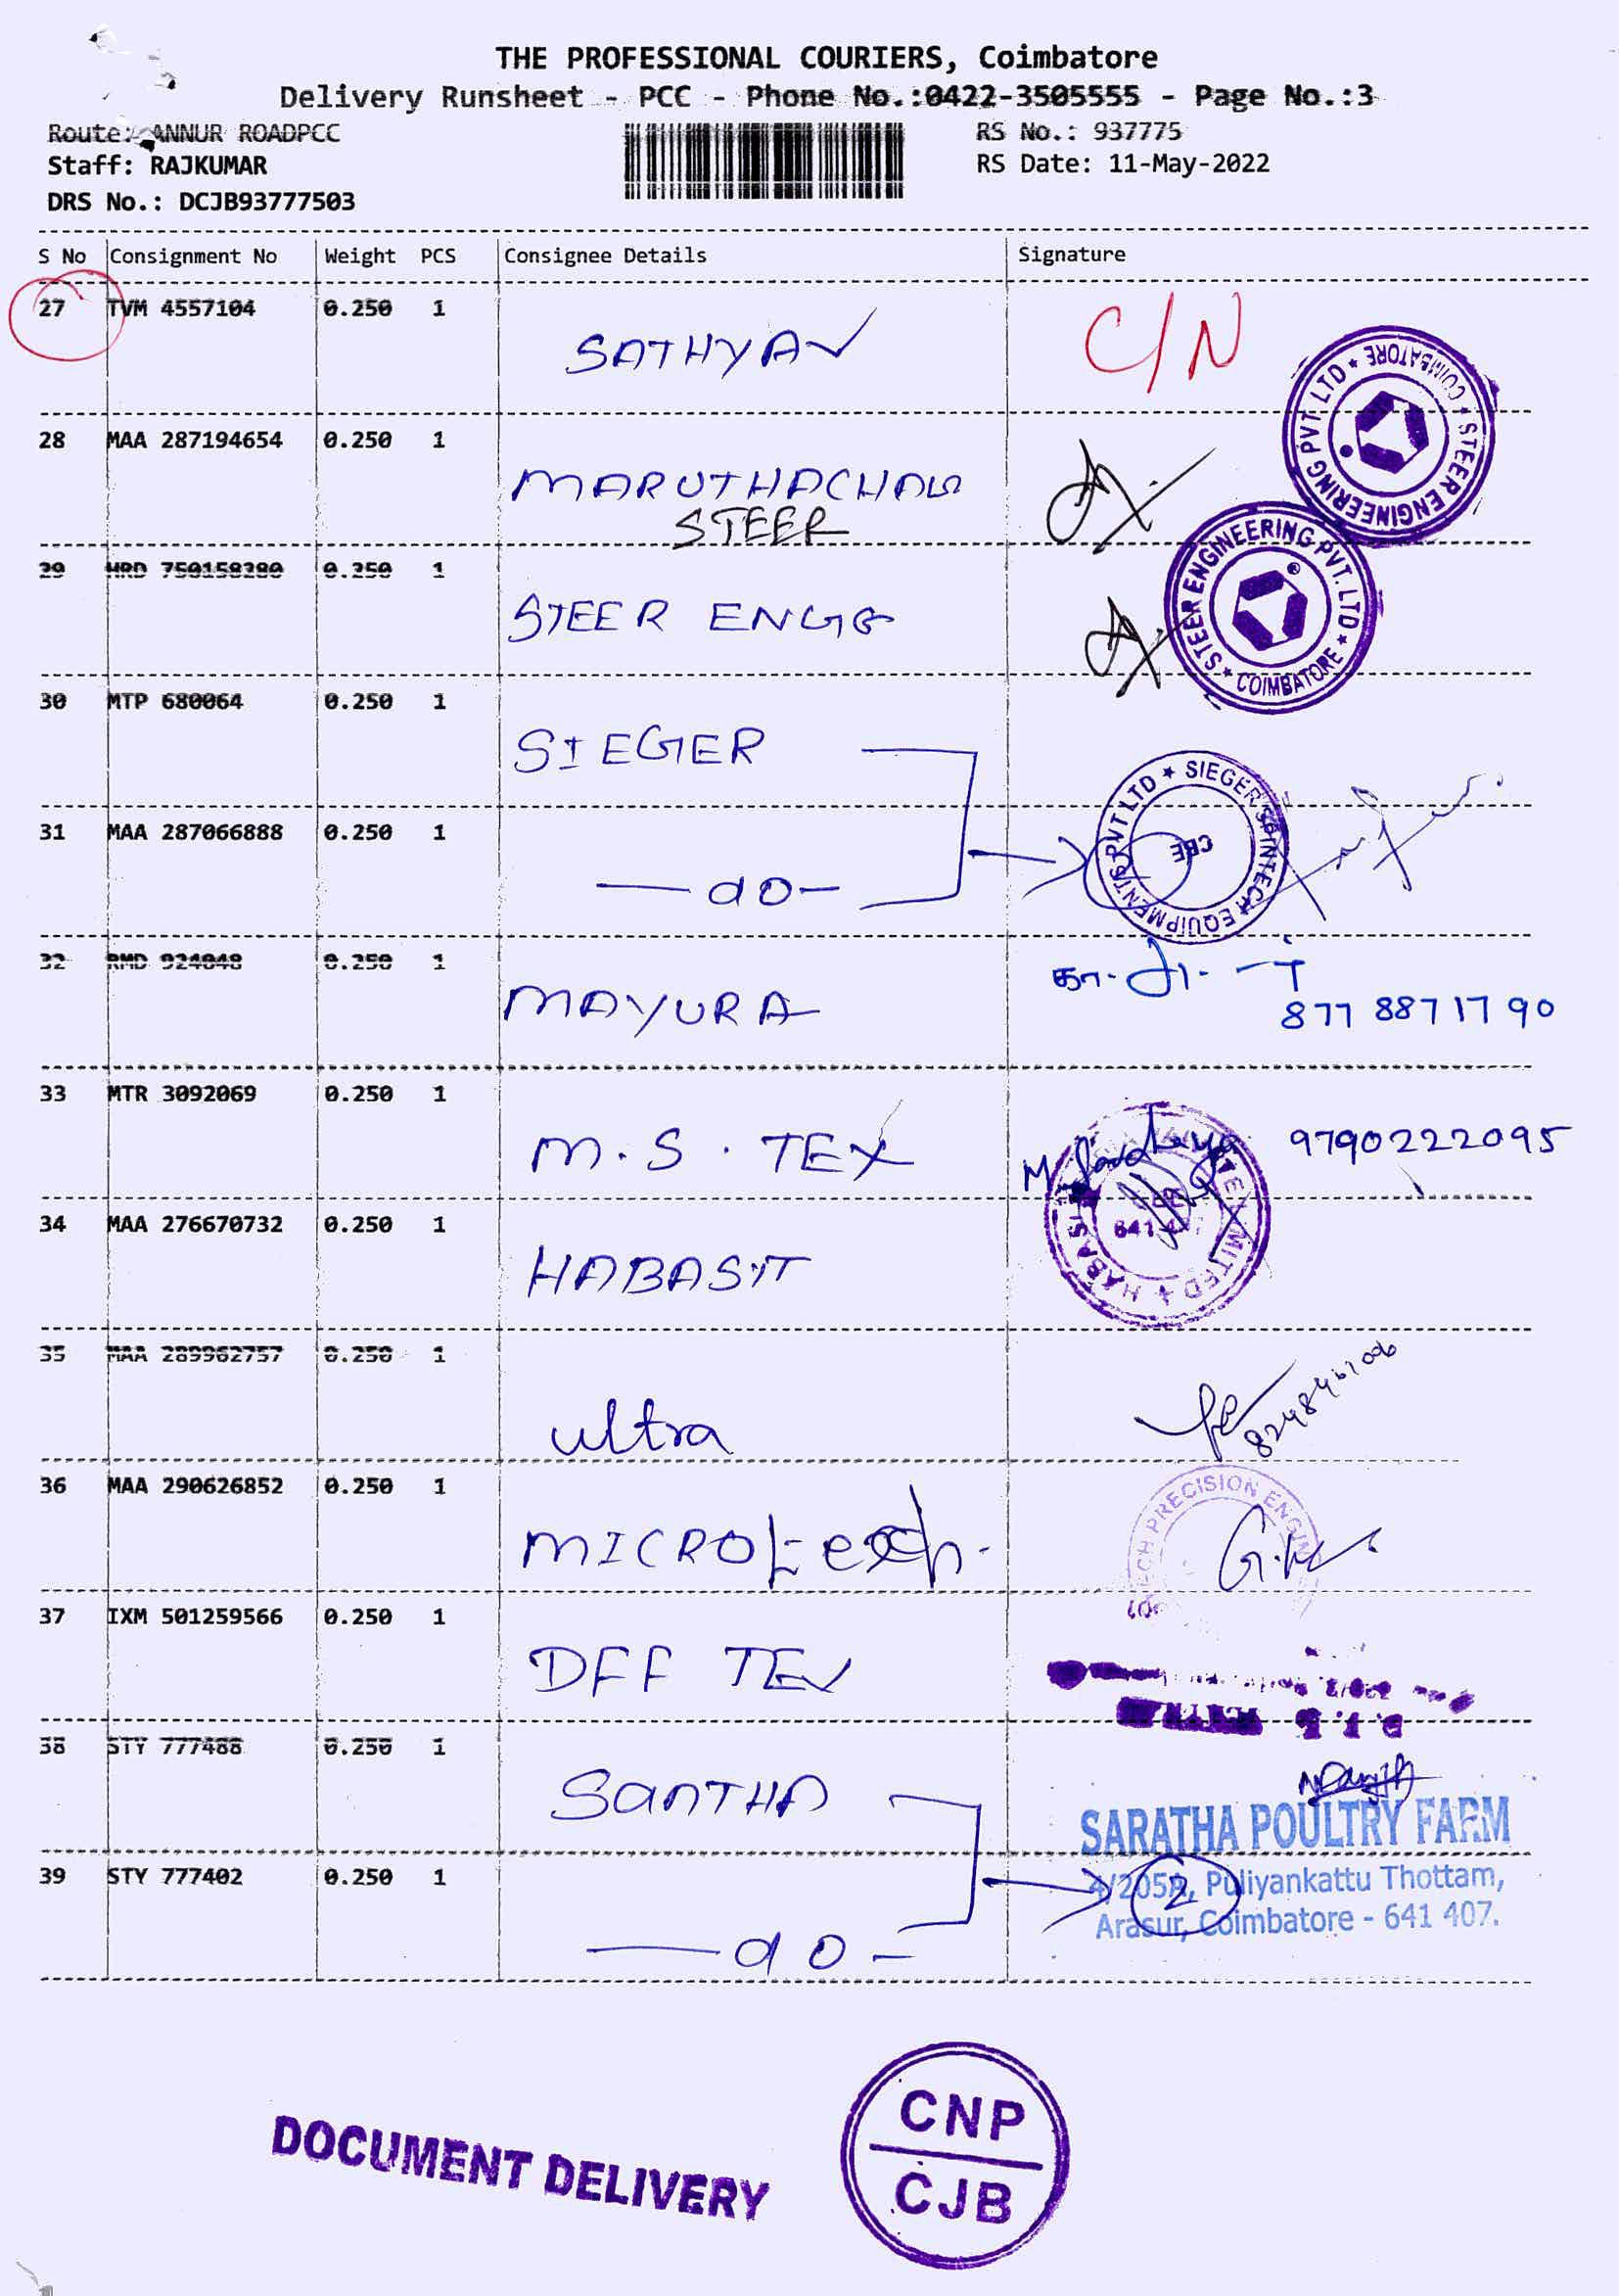 THE PROFESSIONAL COURIERS, Coimbatore
Delivery Runsheet - PCC - Phone No.:0422-3505555 - Page No.:3
Route: ANNUR ROADPCC
RS No.: 937775
Staff: RAJKUMAR
RS Date: 11-May-2022
DRS No.: DCJB93777503
S No Consignment No Weight PCS Consignee Details Signature
27 TVM 4557104 0.250 1
SATHYA C/N
STEER ENGINEERING PVT LTD * COIMBATORE *
28 MAA 287194654 0.250 1
MARUTHACHALA
STEER
29 HRD 750158280 0.250 1
STEER ENGG
STEER ENGINEERING PVT. LTD * COIMBATORE *
30 MTP 680064 0.250 1
SIEGER
31 MAA 287066888 0.250 1
SIEGER SPINTECH EQUIPMENTS PVT LTD *
CBE
—do-
32 RMD 924048 0.250 1
MAYURA
877 887 17 90
33 MTR 3092069 0.250 1
M.S. TEX 9790222095
34 MAA 276670732 0.250 1
HABASIT
35 MAA 289962757 0.250 1
ultra
36 MAA 290626852 0.250 1
PRECISION
MICROtech.
37 IXM 501259566 0.250 1
DFF
38 STY 777488 0.250 1
SARATHA POULTRY FARM
39 STY 777402 0.250 1
4/205A, Puliyankattu Thottam,
2
Arasur, Coimbatore - 641 407.
—do-
DOCUMENT DELIVERY
CNP
CJB